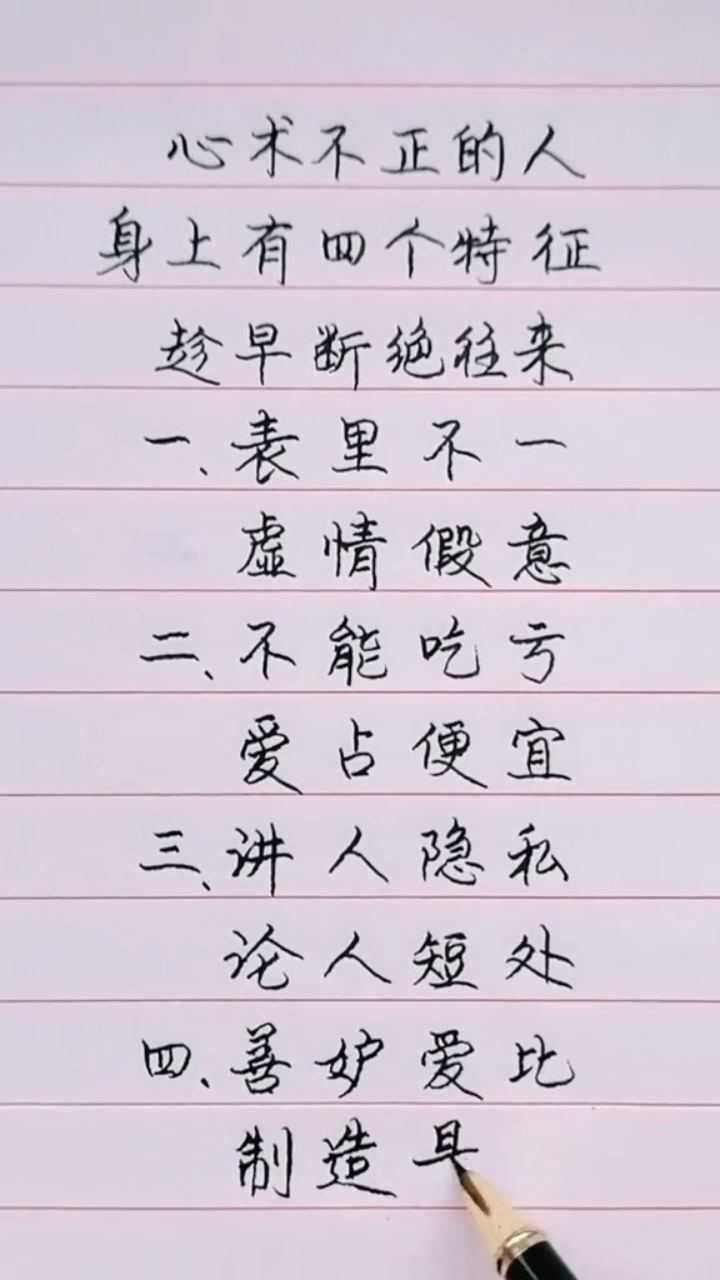 心术不正的人
身上有四个特征
趁早断绝往来
一、表里不一
虚情假意
二、不能吃亏
爱占便宜
三、讲人隐私
论人短处
四、善妒爱比
制造